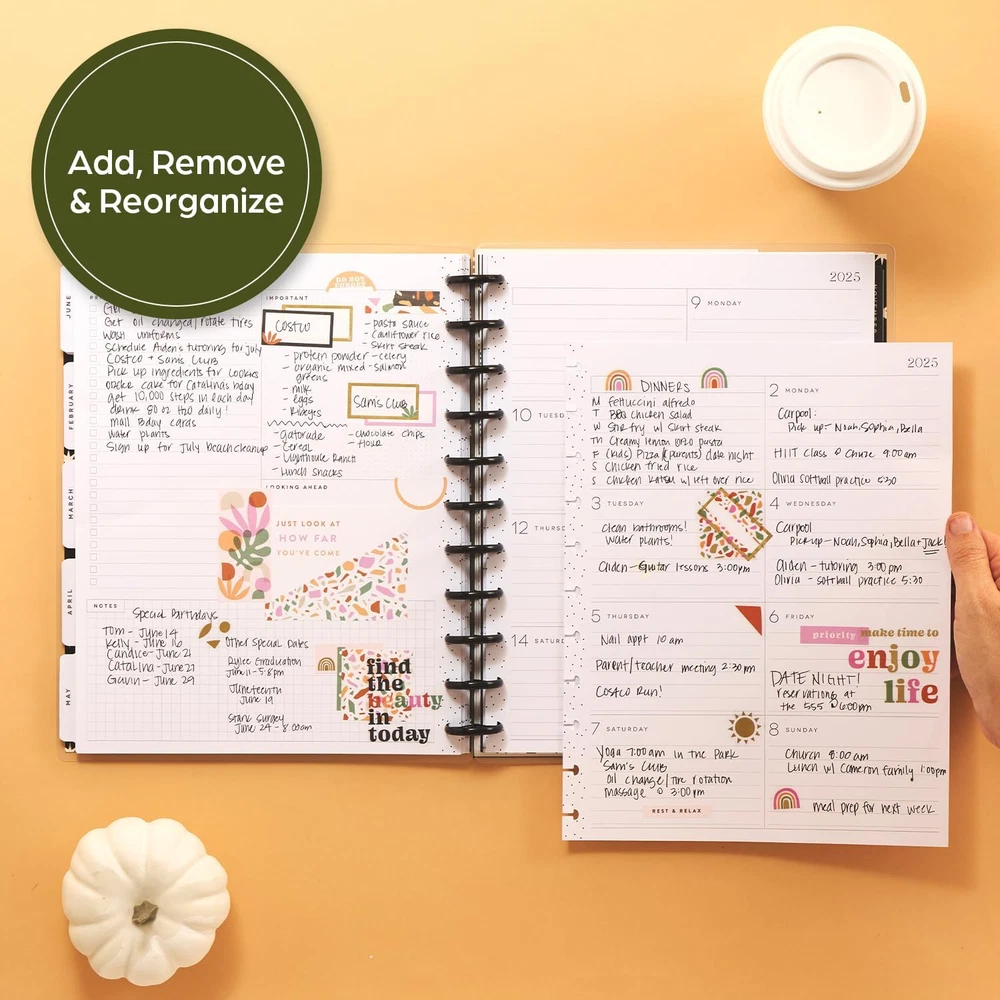 Add, Remove
& Reorganize
JUNE
FEBRUARY
MARCH
APRIL
MAY
DO NOT
FORGET
Get oil changed/rotate tires
wash uniforms
Schedule Aiden's tutoring for July
Costco + Sams Club
Pick up ingredients for cookies
order cake for Catalina's bday
get 10,000 steps in each day
drink 80 oz H2O daily!
mail Bday cards
water plants
Sign up for July beach cleanup
IMPORTANT
Costco
- pasta sauce
- Cauliflower rice
- Skirt steak
- protein powder
- celery
- organic mixed greens
- salmon
- milk
- eggs
Sam's Club
- Gatorade
- Cereal
- Lighthouse Ranch
- Lunch snacks
- chocolate chips
- flour
LOOKING AHEAD
JUST LOOK AT
HOW FAR
YOU'VE COME
NOTES
Special Birthdays
Tom - June 14
Kelly - June 16
Candice - June 21
Catalina - June 27
Gavin - June 29
Other Special Dates
Dylce Graduation
June 11 - 5:8pm
Juneteenth
June 19
Stank Surgery
June 24 - 8:00am
find
the
beauty
in
today
2025
9 MONDAY
10 TUESD
12 THURSD
14 SATURD
2025
DINNERS
M Fettuccini alfredo
T BBQ Chicken Salad
W Stir fry w/ Skirt steak
TH Creamy lemon orzo pasta
F (kids) Pizza (parents) date night
S Chicken fried rice
S Chicken Katsu w/ left over rice
2 MONDAY
Carpool:
Pick up - Noah, Sophia, Bella
HIIT Class @ Chuze 9:00am
Olivia softball practice 5:30
3 TUESDAY
Clean bathrooms!
Water plants!
Aiden - Guitar lessons 3:00pm
4 WEDNESDAY
Carpool
Pick up - Noah, Sophia, Bella + Jack!
Aiden - tutoring 3:00 pm
Olivia - softball practice 5:30
5 THURSDAY
Nail appt 10 am
Parent/teacher meeting 2:30 pm
Costco Run!
6 FRIDAY
priority
make time to
enjoy
life
DATE NIGHT!
reservations at
the 555 @ 6:00pm
7 SATURDAY
Yoga 7:00am in the Park
Sam's Club
Oil change/Tire rotation
massage @ 3:00 pm
REST & RELAX
8 SUNDAY
Church 8:00 am
Lunch w/ Cameron family 1:00pm
meal prep for next week